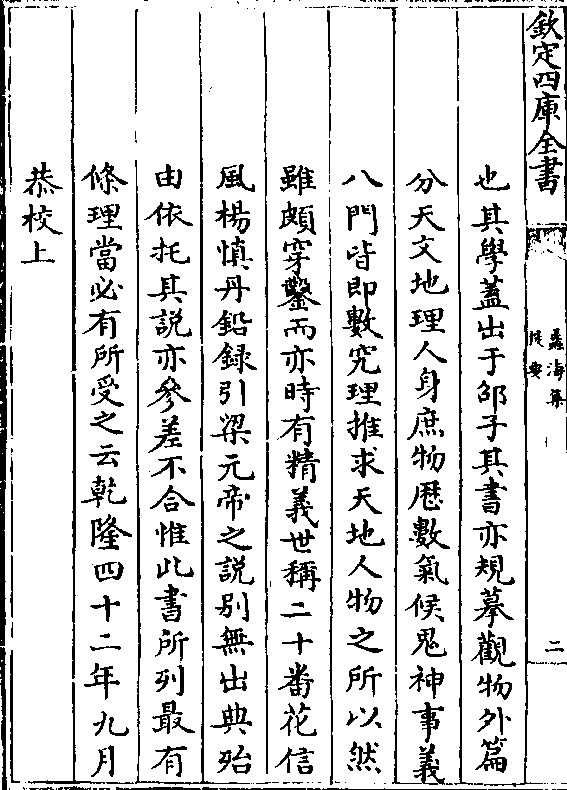 欽定四庫全書
蠡海集
提要
二
也其學蓋出于邵子其書亦規摹觀物外篇
分天文地理人身庶物厯數氣候鬼神事義
八門皆即數究理推求天地人物之所以然
雖頗穿鑿而亦時有精義世稱二十番花信
風楊慎丹鉛録引梁元帝之說别無出典殆
由依托其說亦參差不合惟此書所列最有
條理當必有所受之云乾隆四十二年九月
恭校上